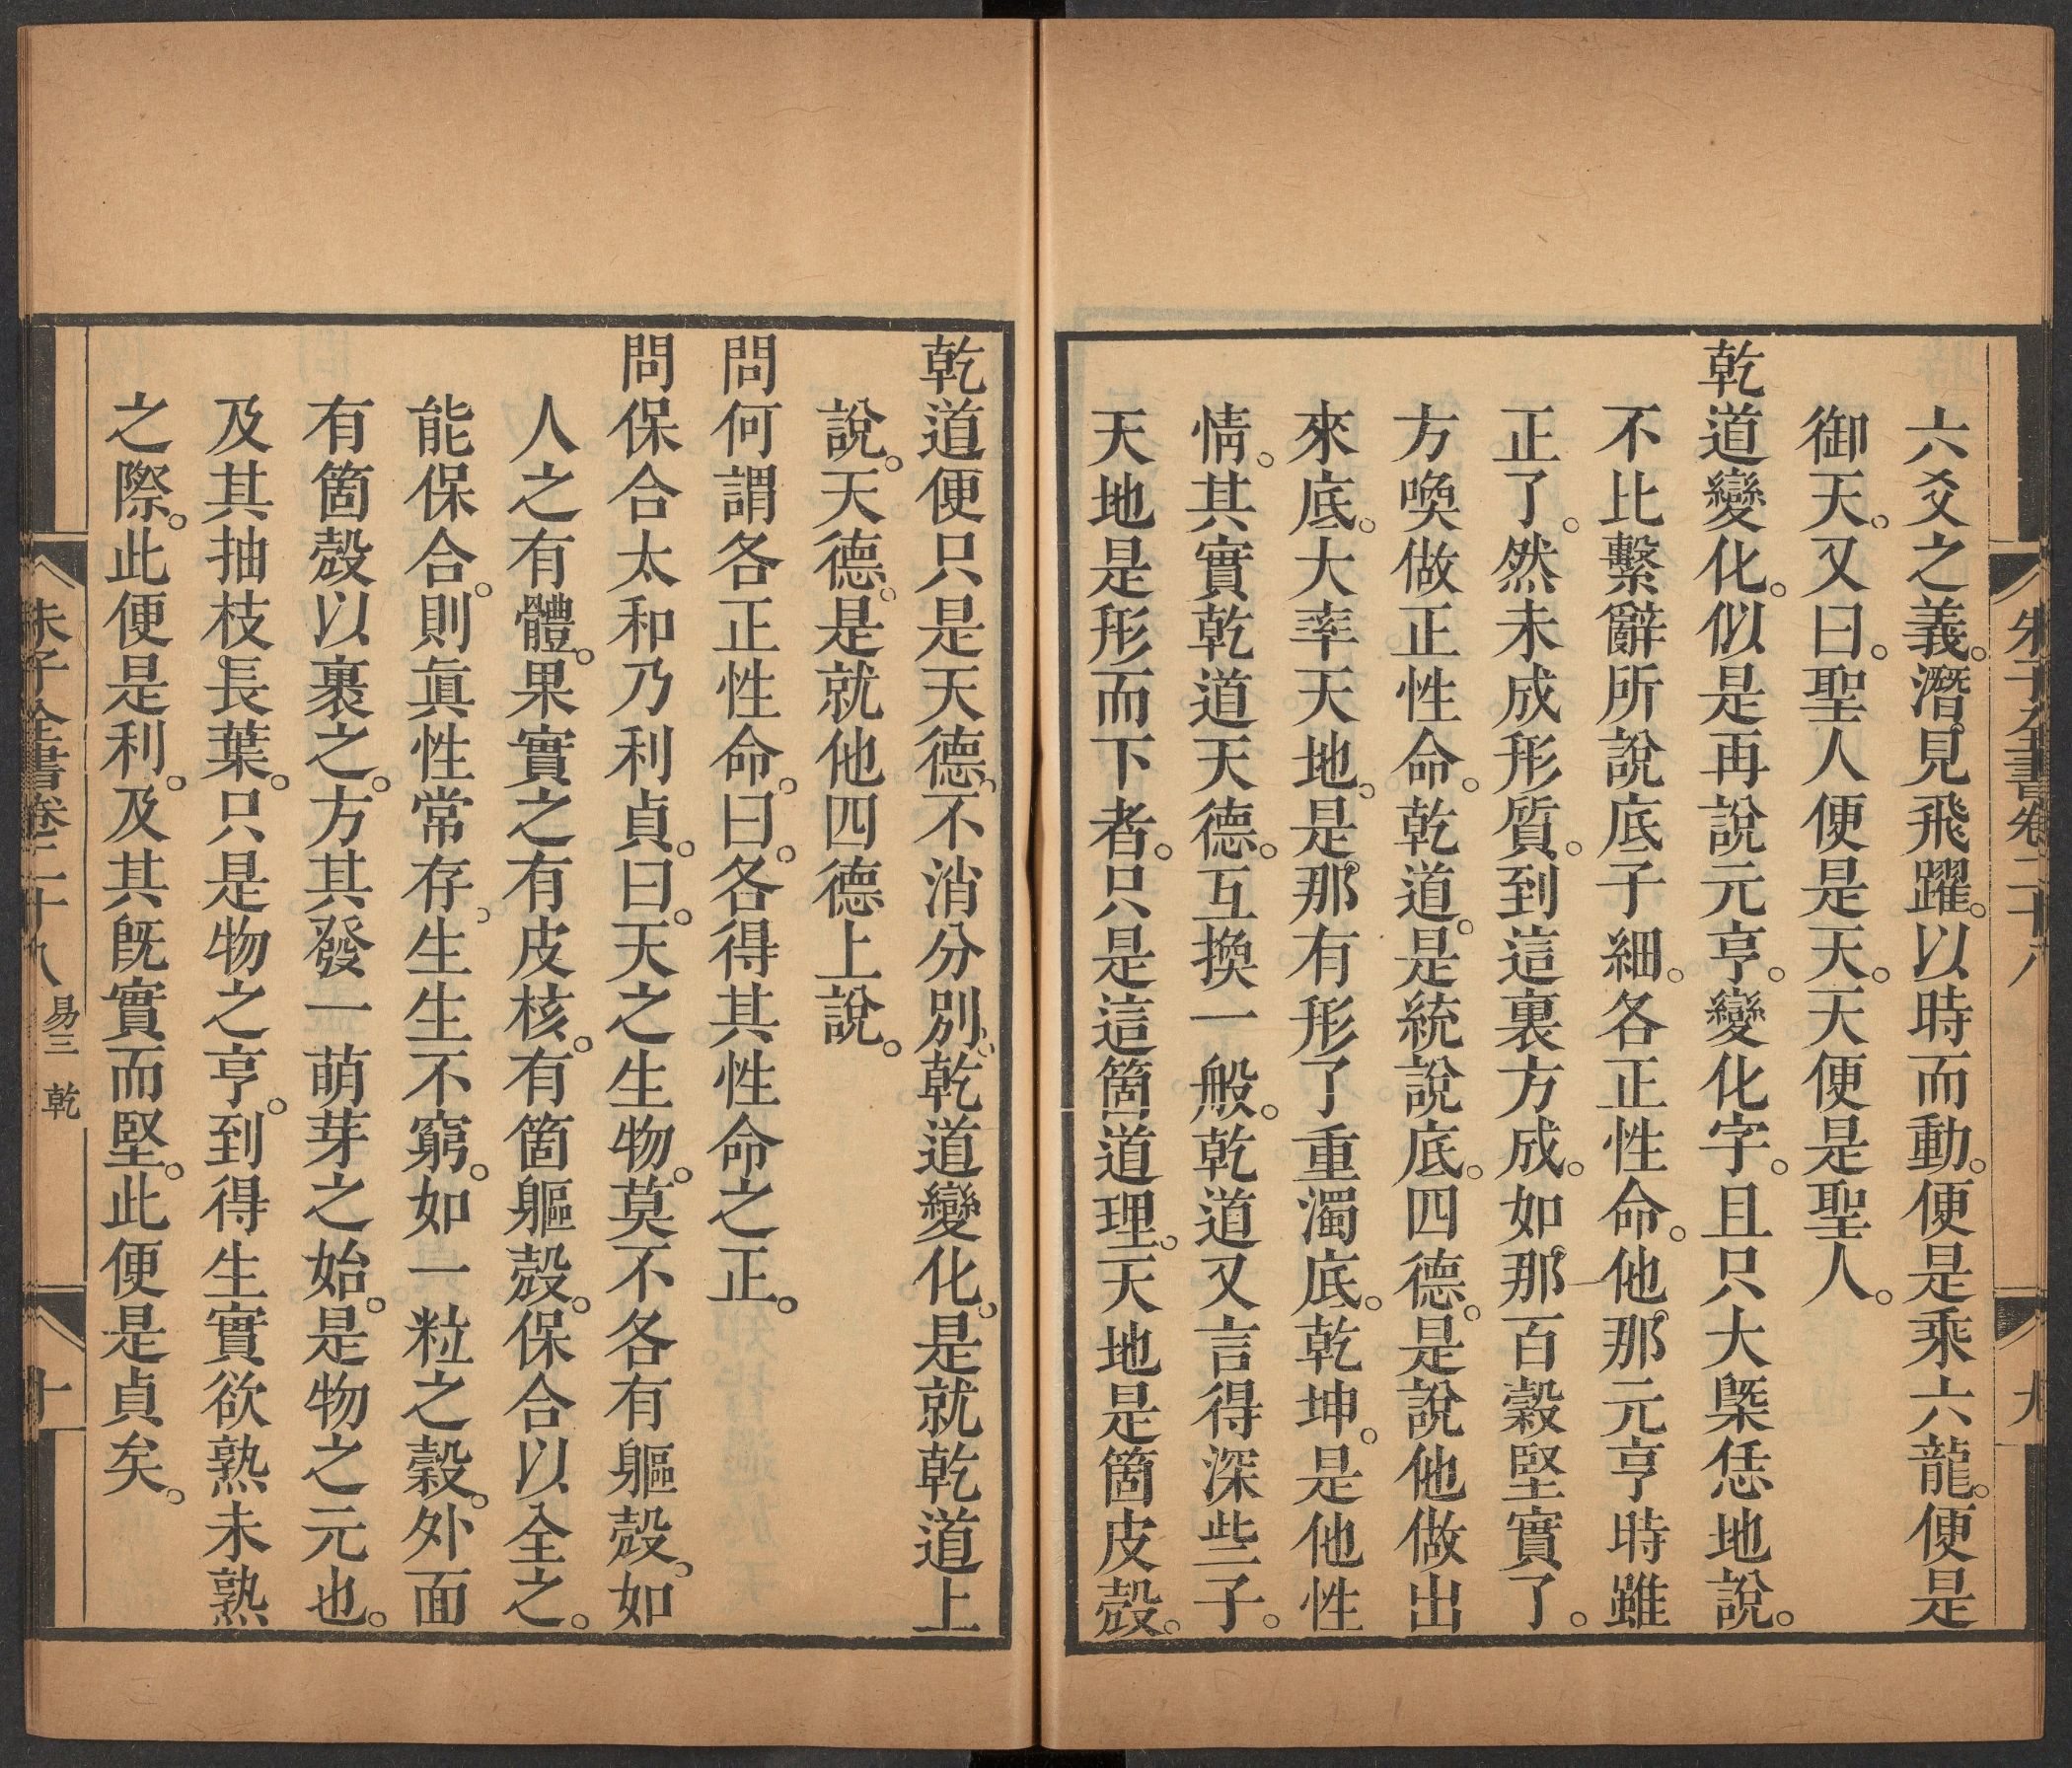 朱子全書卷二十八
九
六爻之義。潛見飛躍。以時而動。便是乘六龍。便是
御天。又曰。聖人便是天。天便是聖人。
乾道變化。似是再說元亨。變化字。且只大槩恁地說。
不比繫辭所說底子細。各正性命。他那元亨時雖
正了。然未成形質。到這裏方成。如那百穀堅實了。
方喚做正性命。乾道。是統說底。四德。是說他做出
來底。大率天地。是那有形了重濁底。乾坤。是他性
情。其實乾道天德。互換一般。乾道又言得深些子。
天地是形而下者。只是這箇道理。天地是箇皮殼。
乾道便只是天德、不消分別。乾道變化、是就乾道上
說。天德。是就他四德上說。
問何謂各正性命。曰。各得其性命之正。
問保合太和乃利貞。曰。天之生物。莫不各有軀殼、如
人之有體。果實之有皮核。有箇軀殼。保合以全之。
能保合。則眞性常存、生生不窮。如一粒之穀。外面
有箇殼以裹之。方其發一萌芽之始。是物之元也。
及其抽枝長葉。只是物之亨。到得生實欲熟未熟
之際。此便是利。及其旣實而堅。此便是貞矣。
朱子全書卷二十八 易三 乾
十